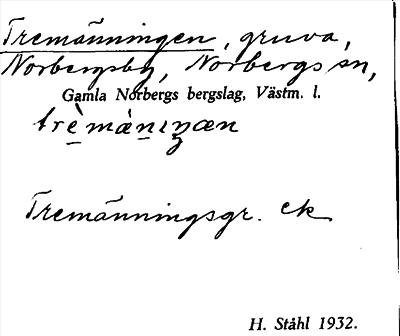 Tremänningen, gruva,
Norbergsby, Norbergs sn,
Gamla Norbergs bergslag, Västm. l.
trè̱màṉıŋæn
Tremänningsgr. ek
H. Ståhl 1932.